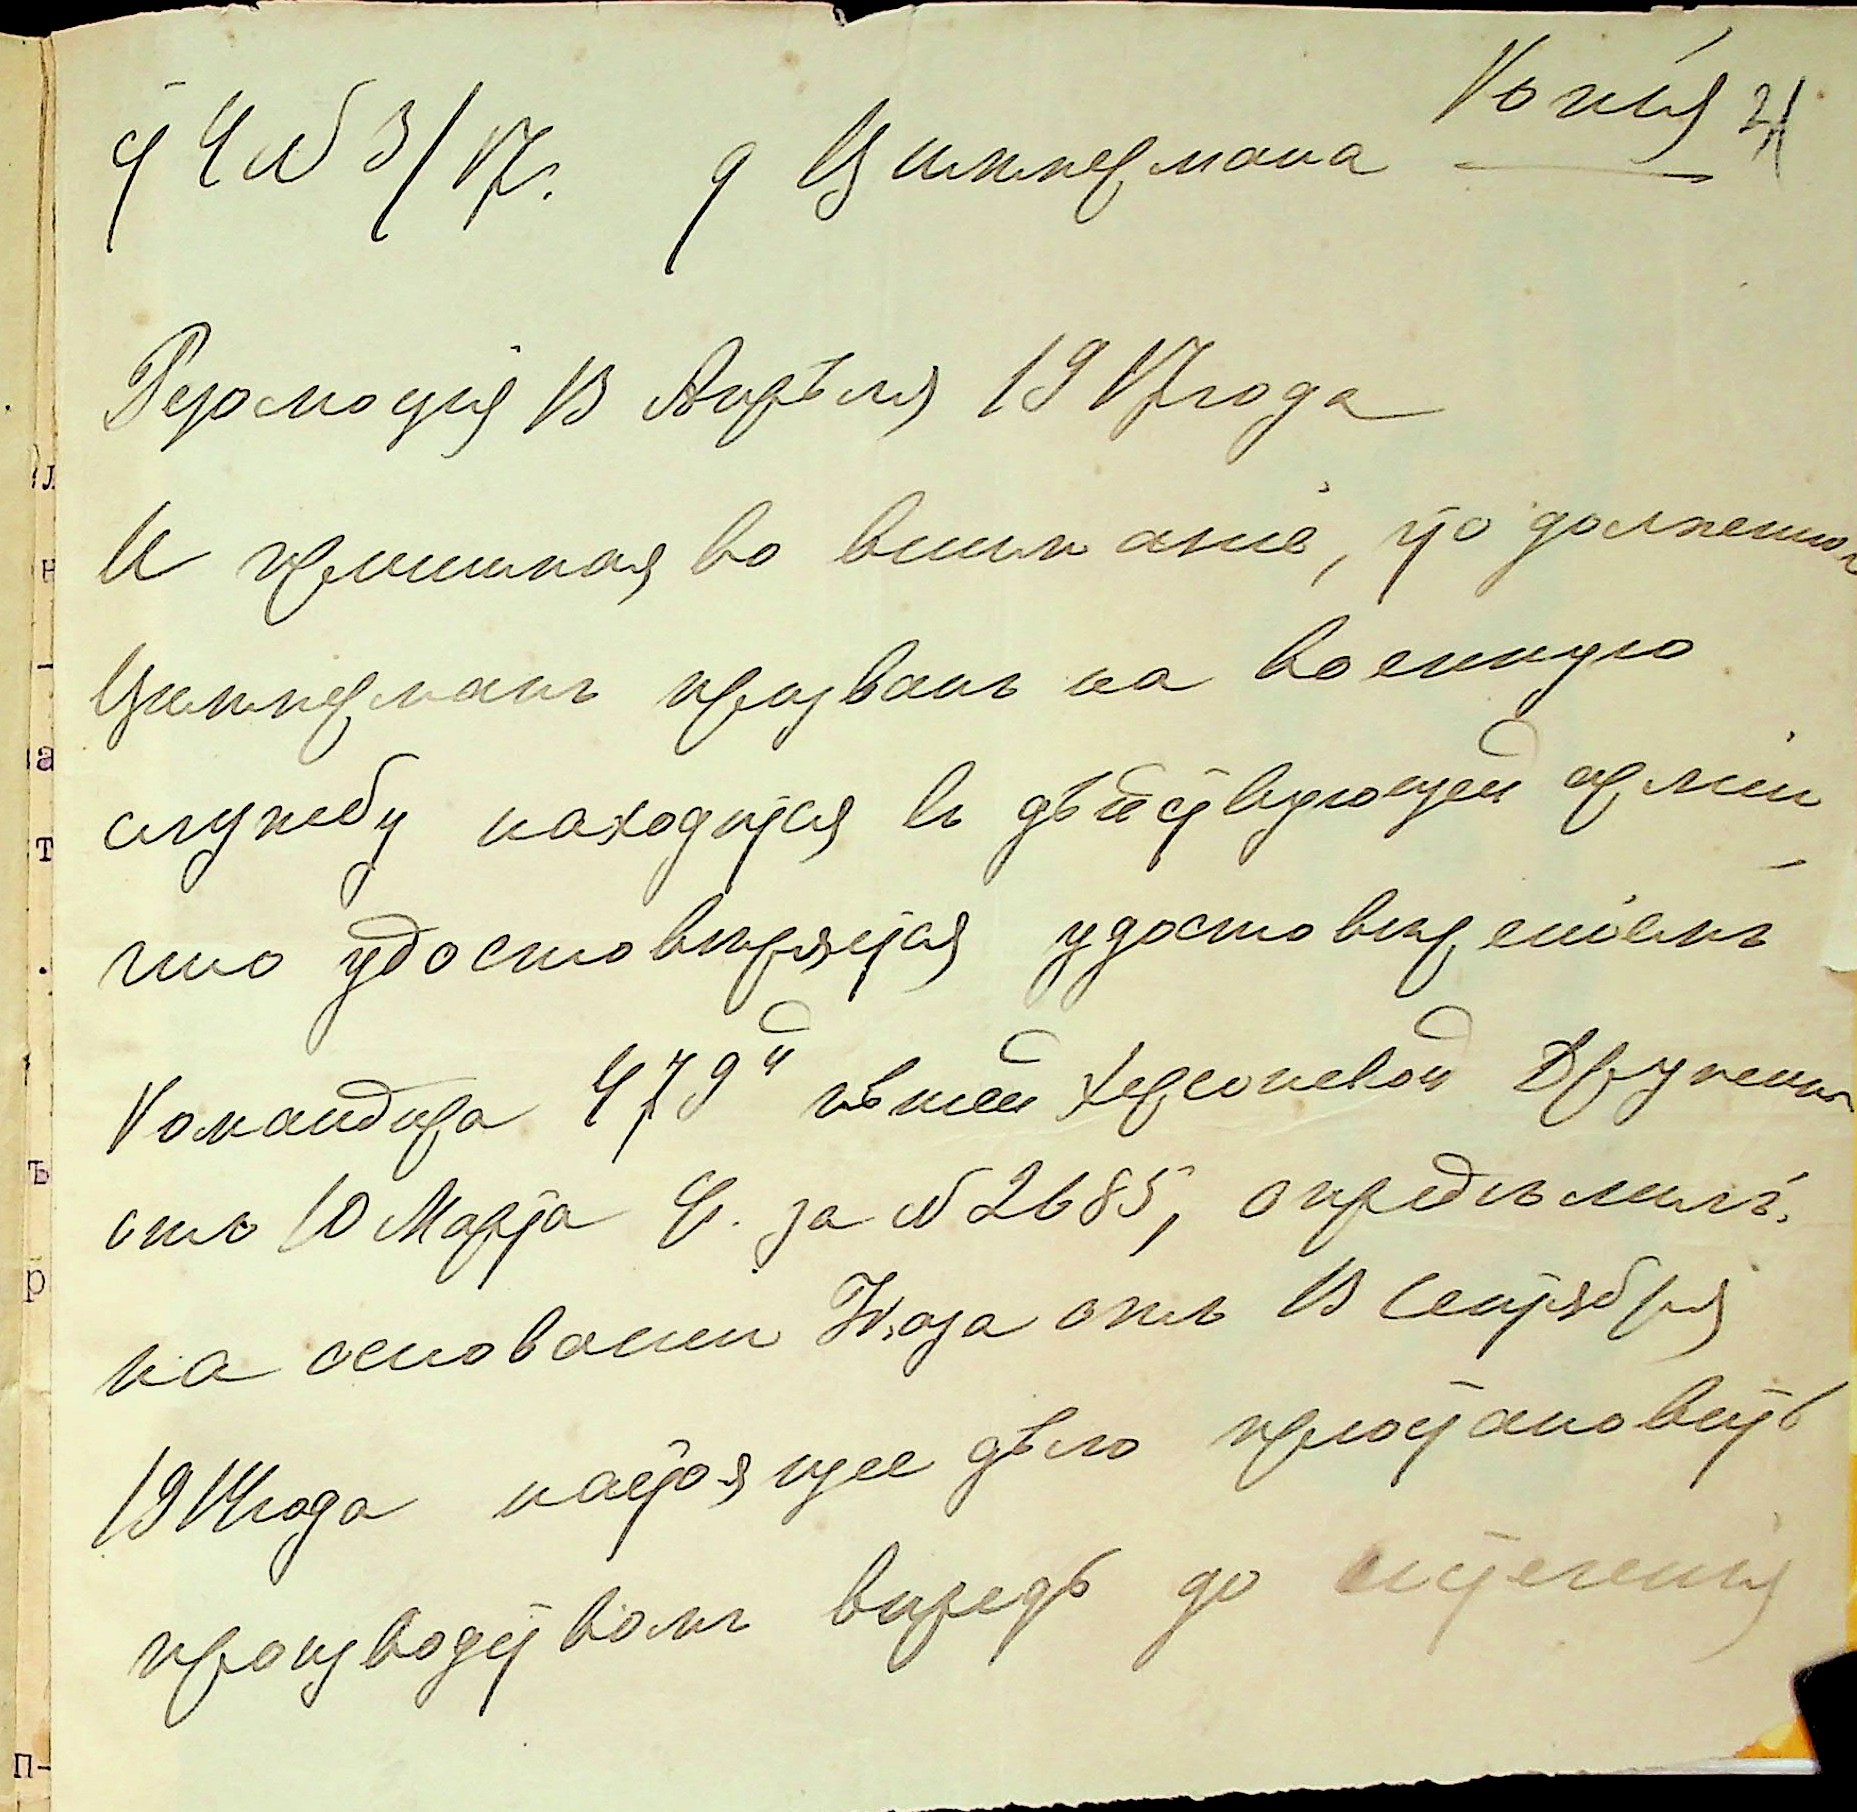 Копія 21
ст Ч № 3/17. д Циммермана
Резолюція 13 Апрѣля 1917 года
И принимая во вниманіе, что должникъ
Циммерманъ призванъ на военную
службу находится въ дѣйствующей арміи
что удостовѣряется удостовѣреніемъ
Командира 479й пѣшей Херсонской Дружины
отъ 10 Марта с.г. за № 2685, опредѣлилъ:
на основаніи Указа отъ 13 Сентября
1914 года настоящее дѣло пріостановить
производствомъ впредь до истеченія